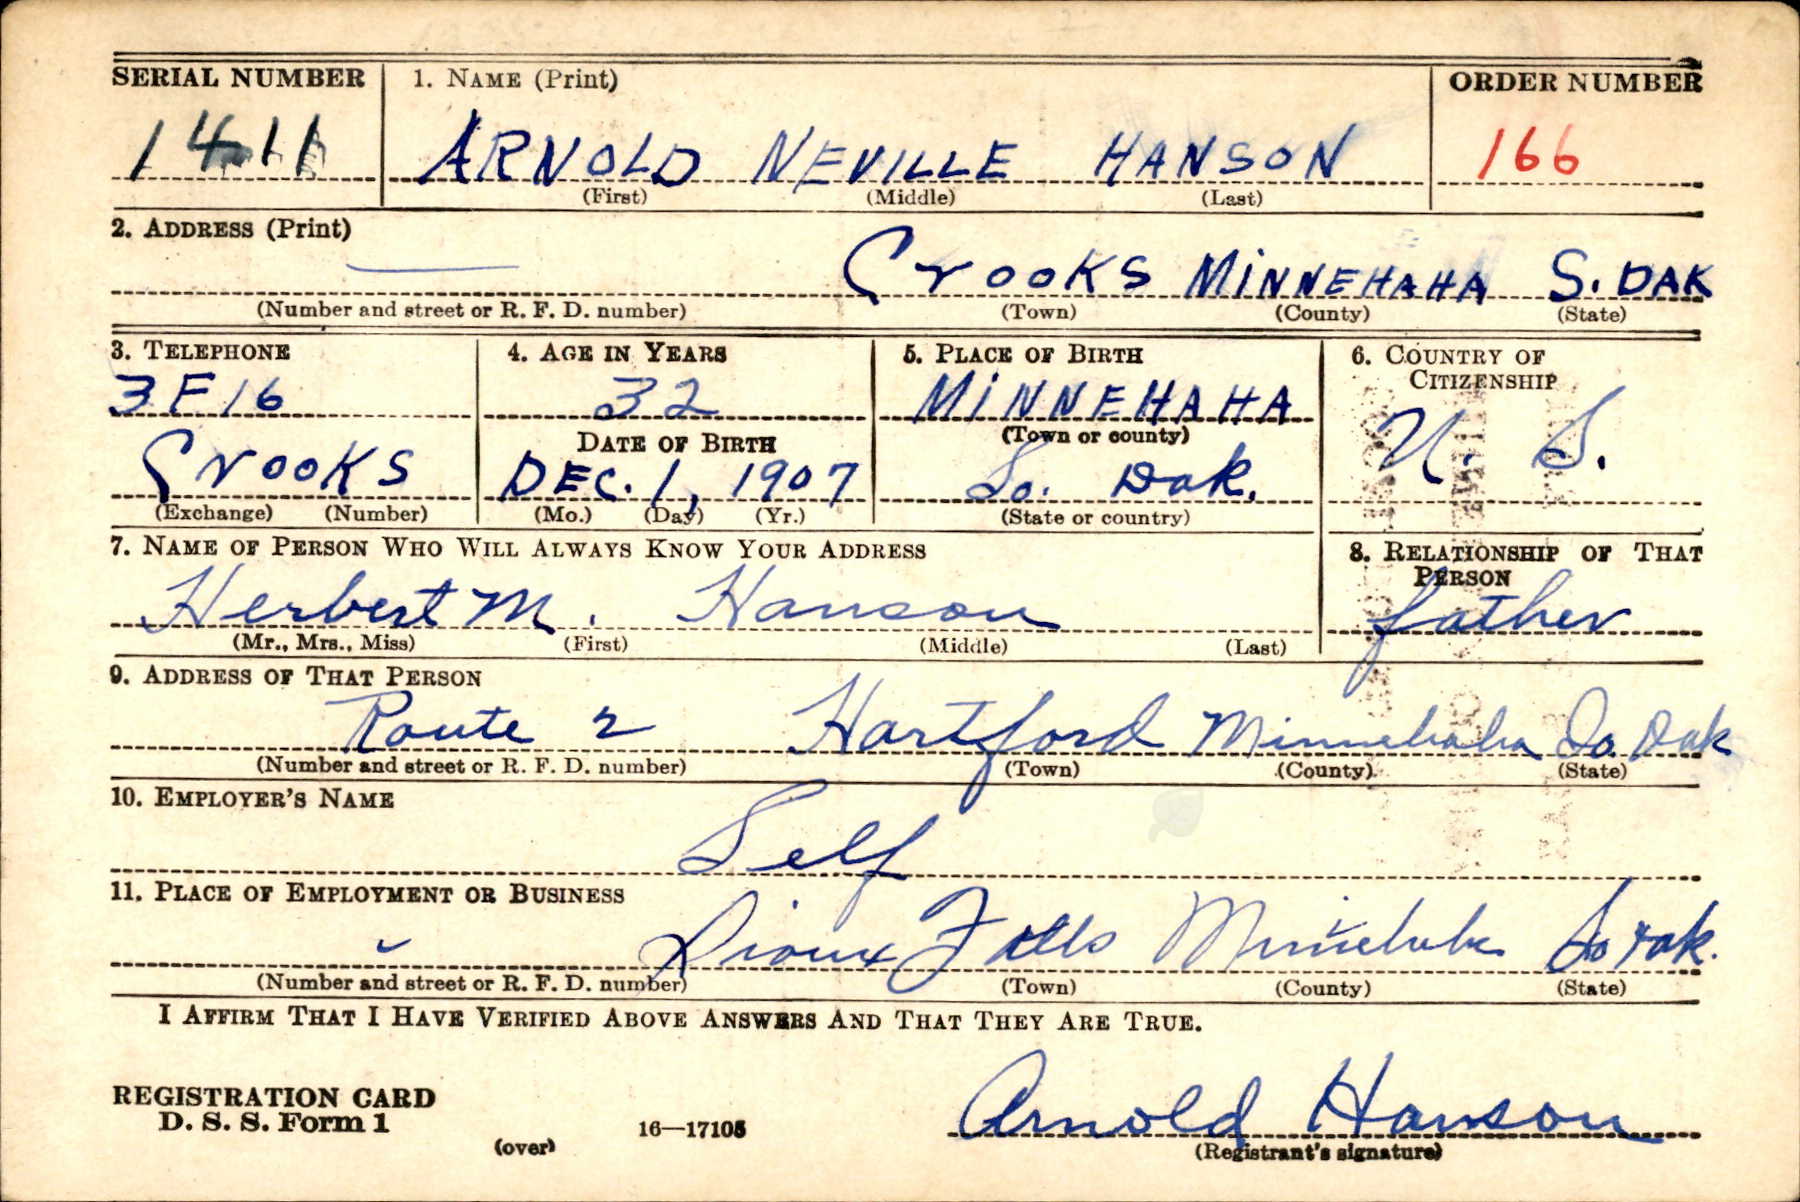 SERIAL NUMBER 1. NAME (Print) ORDER NUMBER
1411 ARNOLD NEVILLE HANSON 166
(First) (Middle) (Last)
2. ADDRESS (Print)
Crooks MINNEHAHA S. DAK
(Number and street or R. F. D. number) (Town) (County) (State)
3. TELEPHONE 4. AGE IN YEARS 5. PLACE OF BIRTH 6. COUNTRY OF CITIZENSHIP
3F16 32 MINNEHAHA U. S.
DATE OF BIRTH (Town or county)
Crooks DEC. 1, 1907 So. Dak.
(Exchange) (Number) (Mo.) (Day) (Yr.) (State or country)
7. NAME OF PERSON WHO WILL ALWAYS KNOW YOUR ADDRESS 8. RELATIONSHIP OF THAT PERSON
Herbert M. Hanson father
(Mr., Mrs., Miss) (First) (Middle) (Last)
9. ADDRESS OF THAT PERSON
Route 2 Hartford Minnehaha So. Dak
(Number and street or R. F. D. number) (Town) (County) (State)
10. EMPLOYER'S NAME
Self
11. PLACE OF EMPLOYMENT OR BUSINESS
Sioux Falls Minnehaha So Dak.
(Number and street or R. F. D. number) (Town) (County) (State)
I AFFIRM THAT I HAVE VERIFIED ABOVE ANSWERS AND THAT THEY ARE TRUE.
Arnold Hanson
REGISTRATION CARD
D. S. S. Form 1
(over) 16—17105 (Registrant's signature)